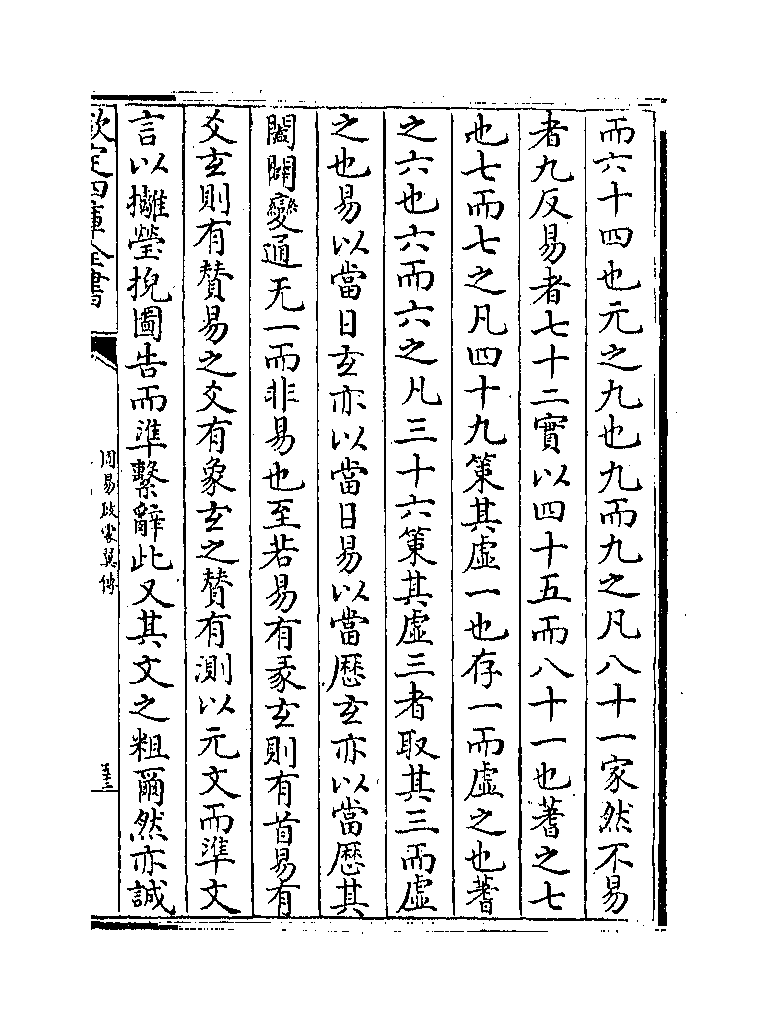 而六十四也元之九也九而九之凡八十一家然不易
者九反易者七十二實以四十五而八十一也蓍之七
也七而七之凡四十九策其虚一也存一而虚之也蓍
之六也六而六之凡三十六策其虚三者取其三而虚
之也易以當日玄亦以當日易以當厯玄亦以當厯其
闔闢變通无一而非易也至若易有彖玄則有首易有
爻玄則有賛易之爻有象玄之賛有測以元文而準文
言以攡瑩掜圖告而準繫辭此又其文之粗爾然亦誠
欽定四庫全書
周易啟蒙翼傳